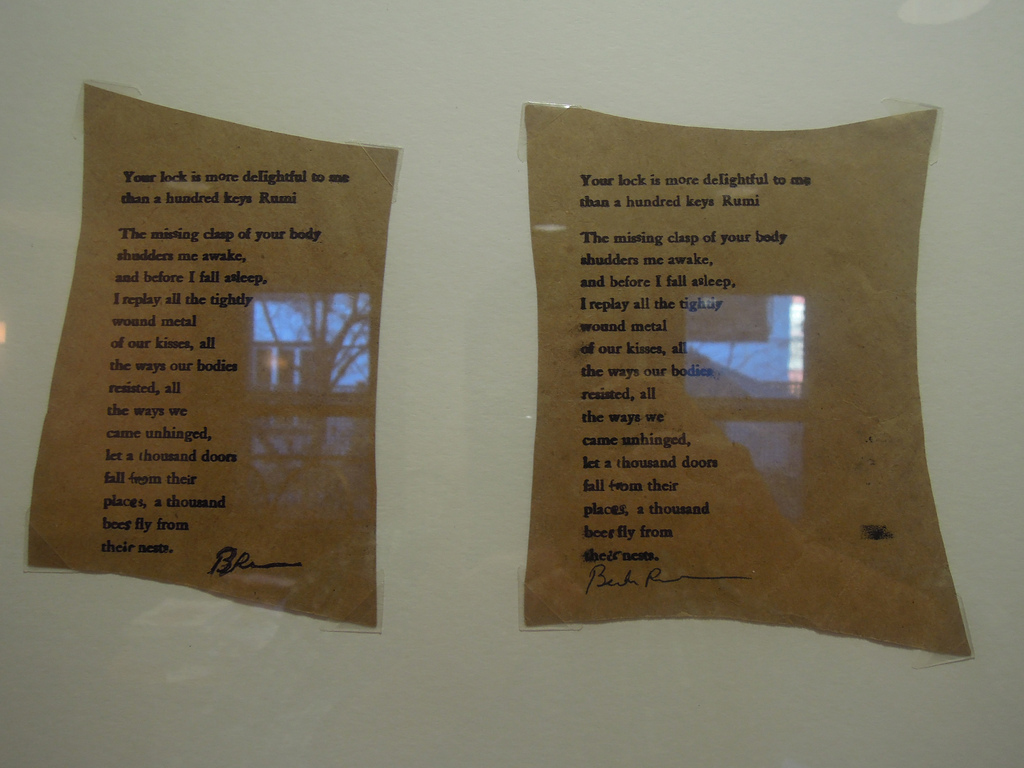 Your lock is more delightful to me
than a hundred keys Rumi
The missing clasp of your body
shudders me awake,
and before I fall asleep,
I replay all the tightly
wound metal
of our kisses, all
the ways our bodies
resisted, all
the ways we
came unhinged,
let a thousand doors
fall from their
places, a thousand
bees fly from
their nests.
Your lock is more delightful to me
than a hundred keys Rumi
The missing clasp of your body
shudders me awake,
and before I fall asleep,
I replay all the tightly
wound metal
of our kisses, all
the ways our bodies
resisted, all
the ways we
came unhinged,
let a thousand doors
fall from their
places, a thousand
bees fly from
their nests.